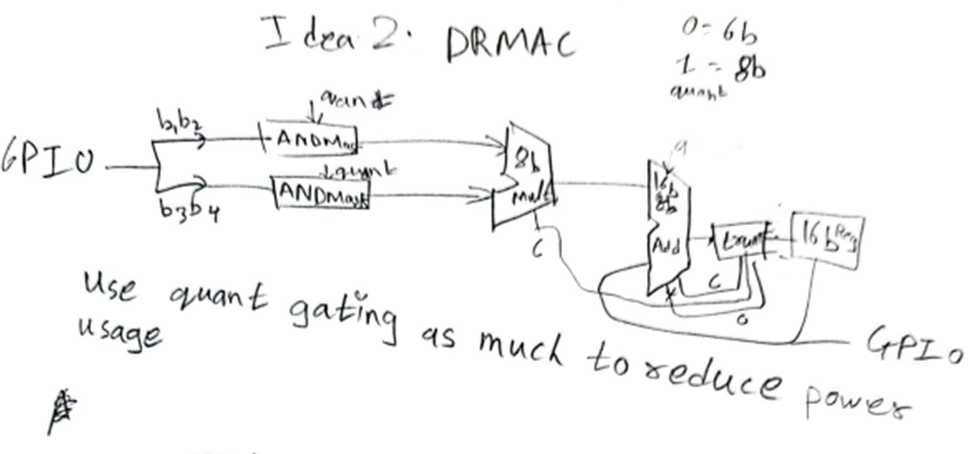 Idea 2: DRMAC
0 = 6b
1 - 8b
quant
GPIO
b1b2
b3b4
quant
ANDMask
quant
ANDMask
8b
Mult
C
q
16b
8b
Add
C
0
16b Reg
GPIO
Use quant gating as much to reduce power
usage